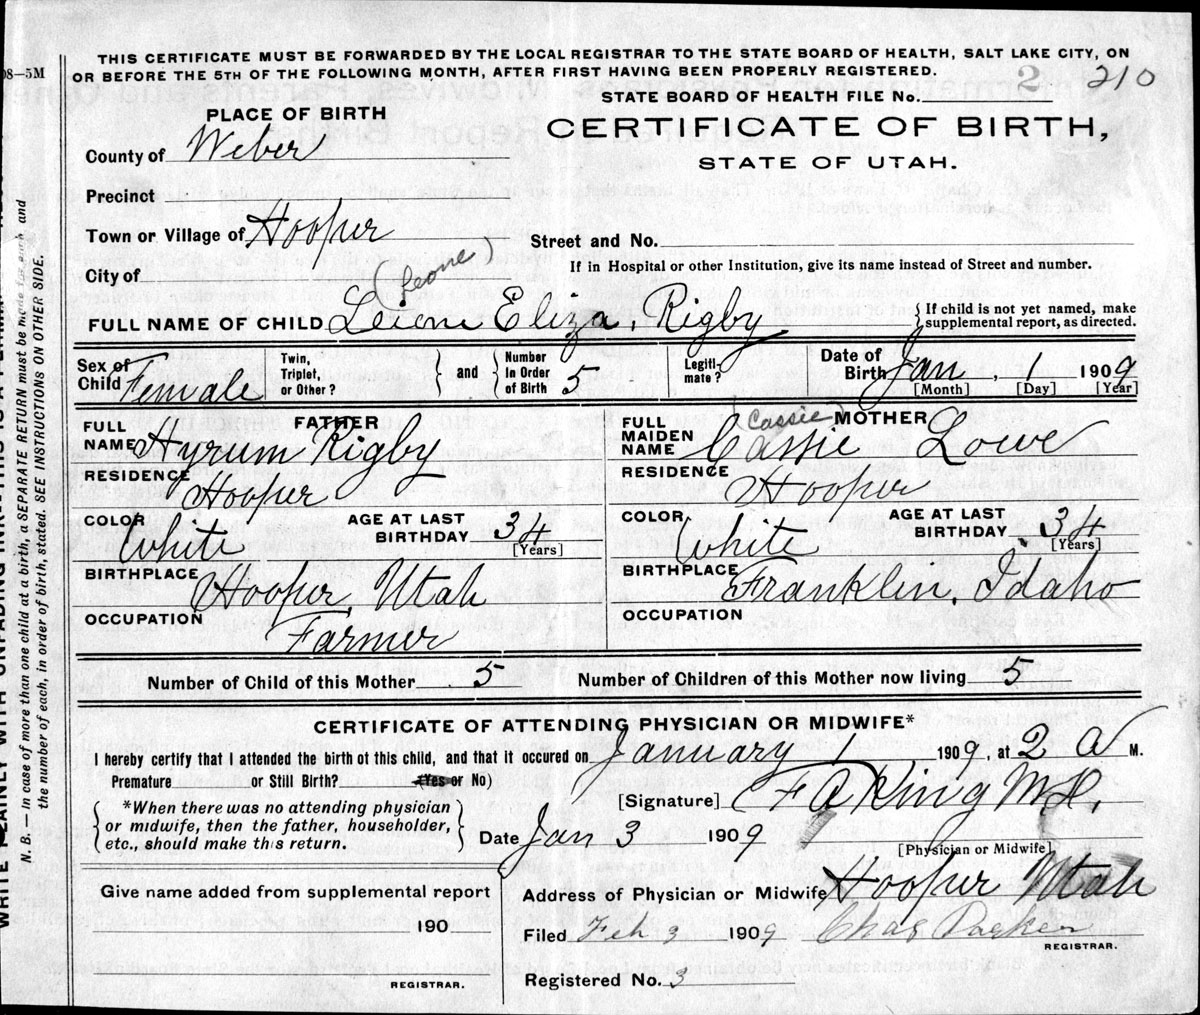 THIS CERTIFICATE MUST BE FORWARDED BY THE LOCAL REGISTRAR TO THE STATE BOARD OF HEALTH, SALT LAKE CITY, ON
08—5M OR BEFORE THE 5TH OF THE FOLLOWING MONTH, AFTER FIRST HAVING BEEN PROPERLY REGISTERED.
STATE BOARD OF HEALTH FILE No. 2 210
PLACE OF BIRTH
CERTIFICATE OF BIRTH,
STATE OF UTAH.
County of Weber
Precinct
Town or Village of Hooper
Street and No.
City of
If in Hospital or other Institution, give its name instead of Street and number.
(Leone)
FULL NAME OF CHILD Leione Eliza Rigby
{ If child is not yet named, make
supplemental report, as directed.
Sex of Child Female
Twin, Triplet, or Other? } and { Number in Order of Birth 5
Legiti- mate?
Date of Birth Jan, 1 1909
[Month] [Day] [Year]
FATHER
FULL NAME Hyrum Rigby
RESIDENCE Hooper
COLOR White
AGE AT LAST BIRTHDAY 34 [Years]
BIRTHPLACE Hooper, Utah
OCCUPATION Farmer
MOTHER
(Cassie)
FULL MAIDEN NAME Cassie Lowe
RESIDENCE Hooper
COLOR White
AGE AT LAST BIRTHDAY 34 [Years]
BIRTHPLACE Franklin, Idaho
OCCUPATION
Number of Child of this Mother 5
Number of Children of this Mother now living 5
CERTIFICATE OF ATTENDING PHYSICIAN OR MIDWIFE*
I hereby certify that I attended the birth of this child, and that it occured on January 1 1909, at 2 A M.
Premature or Still Birth? (Yes or No)
{ *When there was no attending physician
or midwife, then the father, householder,
etc., should make this return. }
[Signature] F A King M.D.
Date Jan 3 1909
[Physician or Midwife]
Give name added from supplemental report
190
REGISTRAR.
Address of Physician or Midwife Hooper Utah
Filed Feb 3 1909 Chas Parker
REGISTRAR.
Registered No. 3
N. B.—In case of more than one child at a birth, a SEPARATE RETURN must be made for each and
the number of each, in order of birth, stated. SEE INSTRUCTIONS ON OTHER SIDE.
WRITE PLAINLY WITH UNFADING INK—THIS IS A